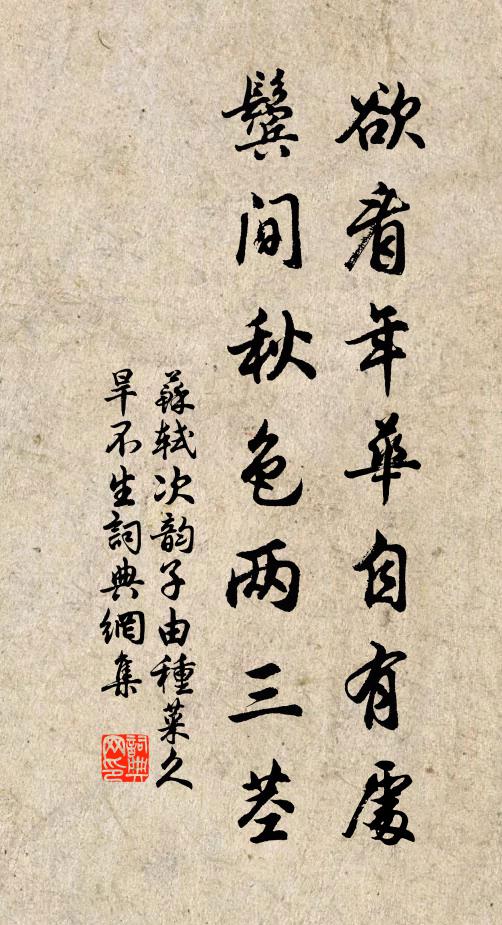 欲看年華自有處
鬢間秋色两三莖
蘇軾次韵子由種菜久
旱不生詞典網集
詞典
网印